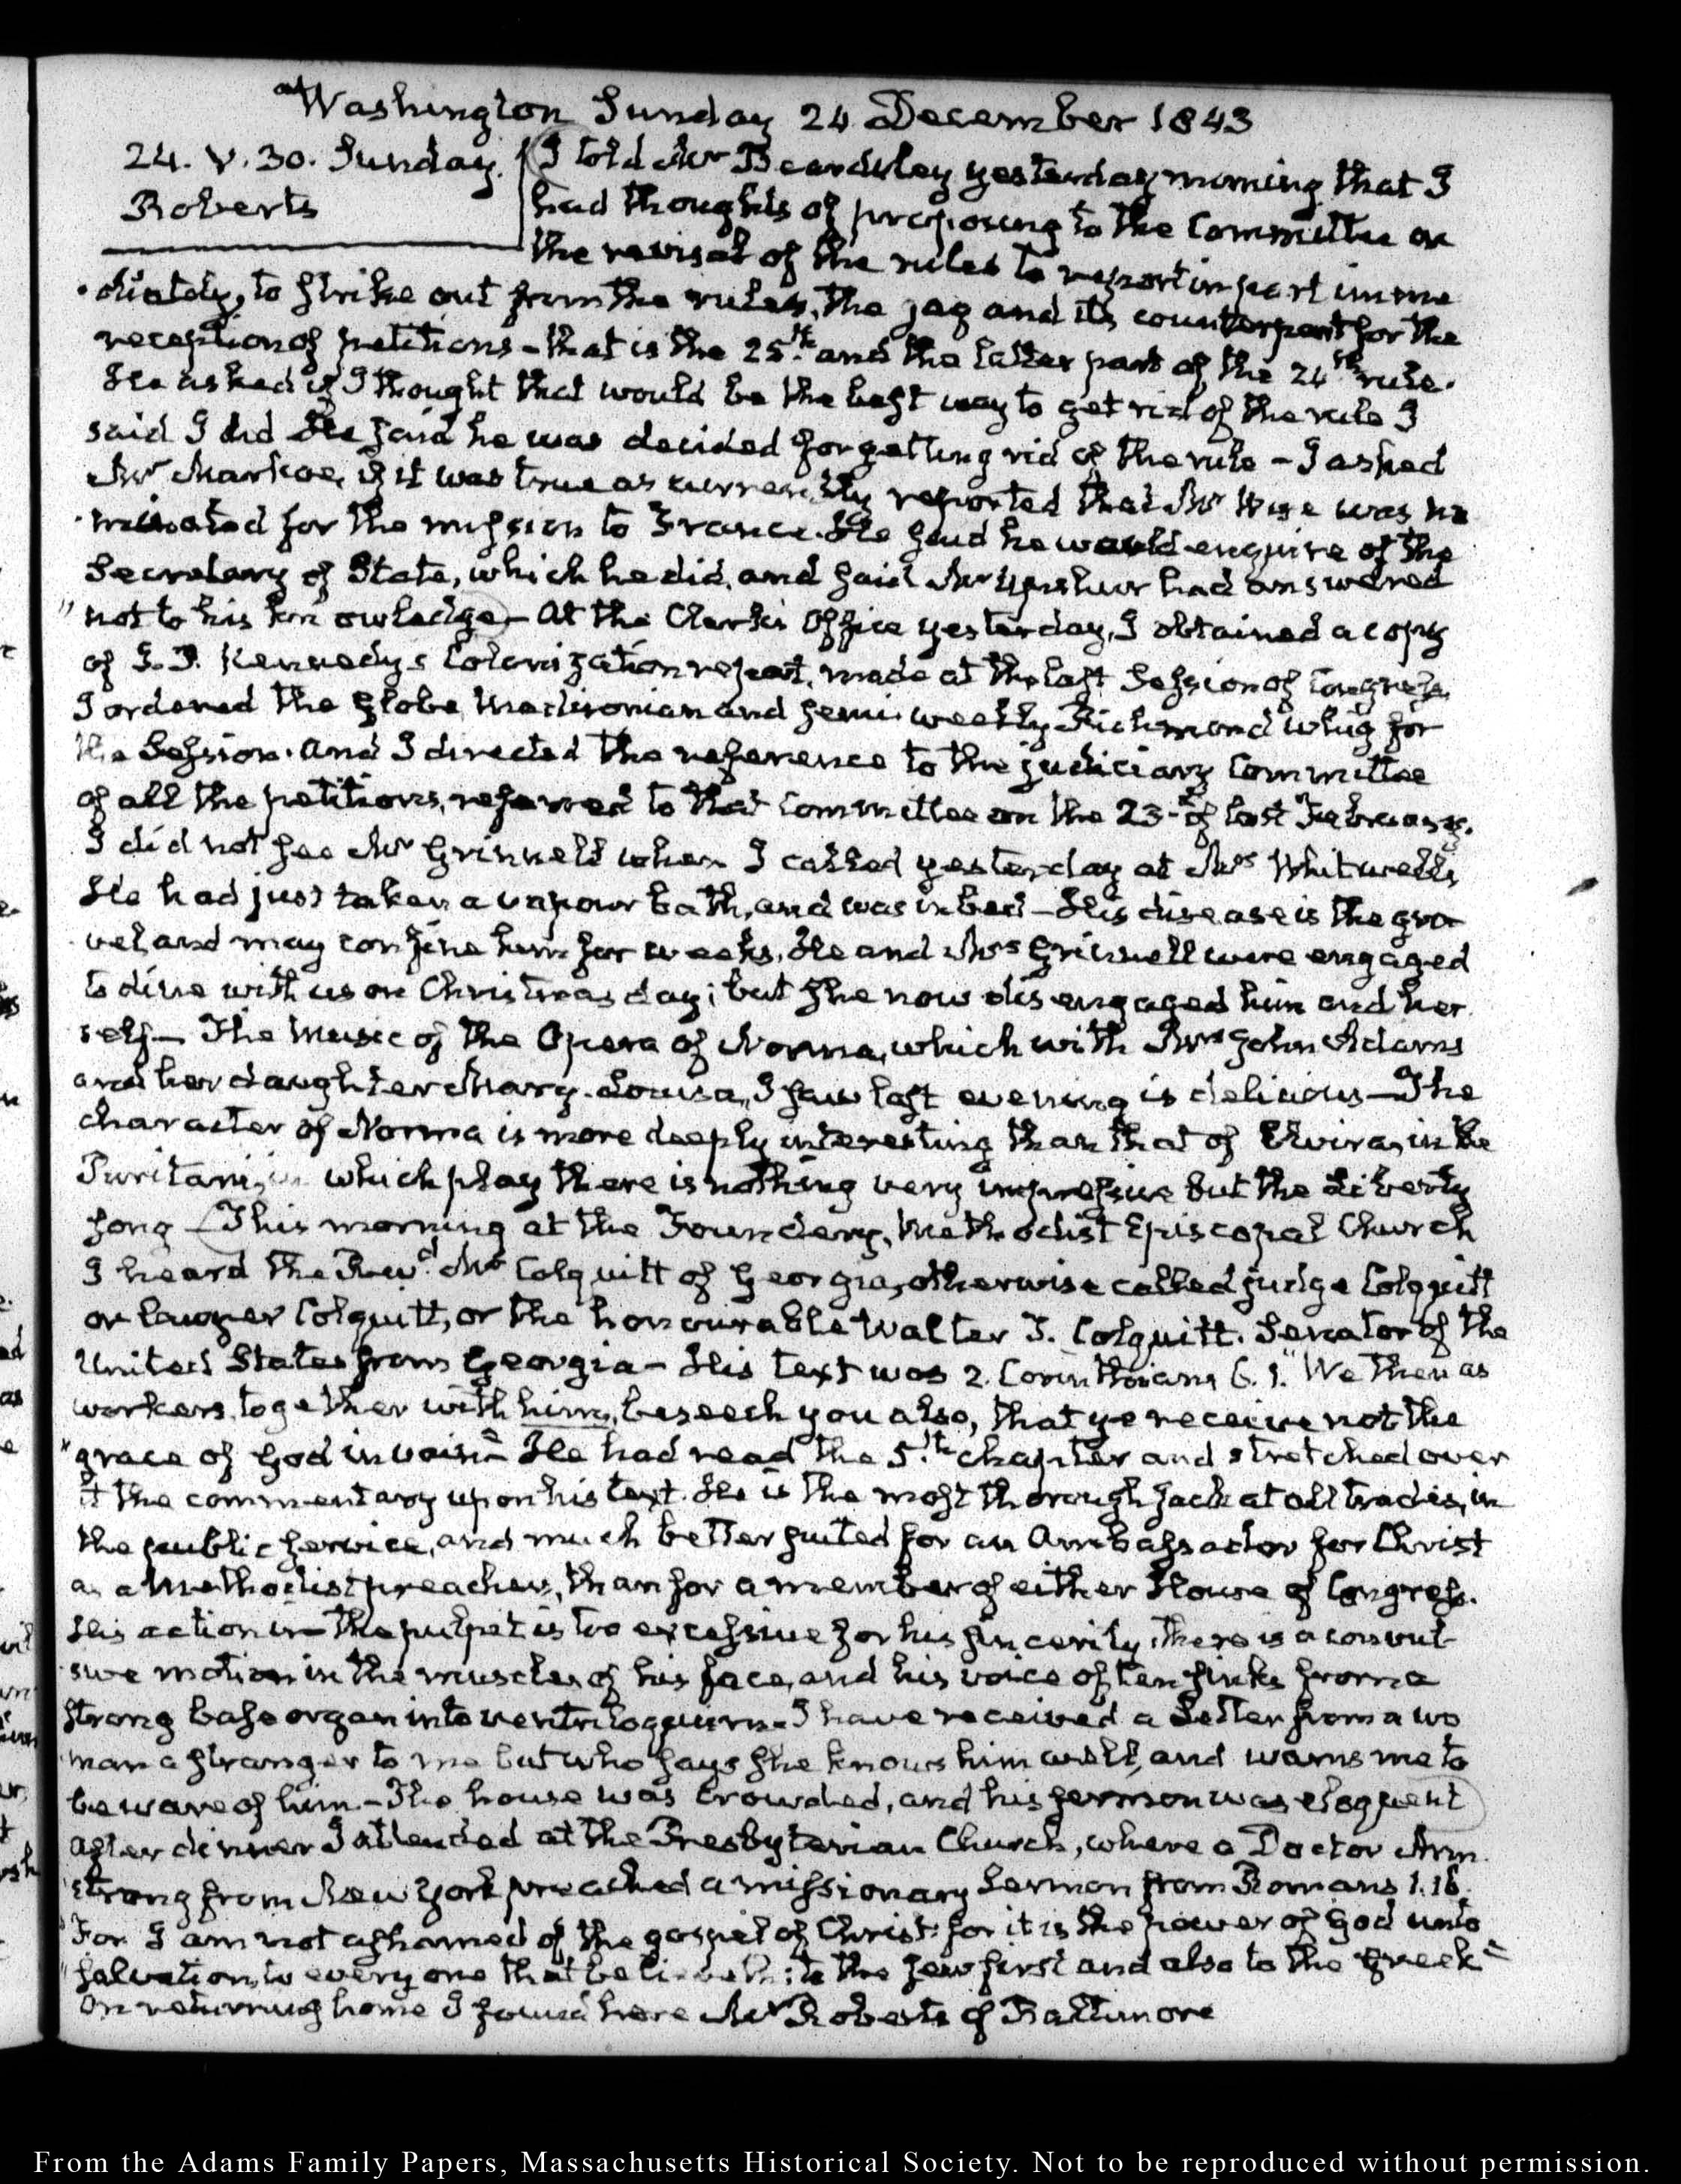 at Washington Sunday 24 December 1843
24. V.30. Sunday.
Roberts
I told Mr Beardsley yesterday morning that I
had thoughts of proposing to the Committee on
the revisal of the rules to report in part imme
diately, to strike out from the rules, the gag and its counterpart for the
reception of petitions - that is the 25th and the latter part of the 24th rule.
He asked if I thought that would be the best way to get rid of the rule I
said I did He said he was decided for getting rid of the rule - I asked
Mr Markoe, if it was true as currently reported that Mr Wise was no
minated for the mission to France. He said he would enquire of the
Secretary of State, which he did, and said Mr Upshur had answered
"not to his knowledge - At the Clerk's Office yesterday, I obtained a copy
of J. P. Kennedy's Colonization report, made at the last Session of Congress.
I ordered the Globe, Madisonian and semi weekly Richmond Whig for
the Session. And I directed the reference to the judiciary Committee
of all the petitions, referred to that Committee on the 23d of last February.
I did not see Mr Grinnell when I called yesterday at Mrs Whitwell's
He had just taken a vapour bath, and was in bed - His disease is the gra
vel and may confine him for weeks. He and Mrs Grinnell were engaged
to dine with us on Christmas day; but she now disengaged him and her
self - The Music of the Opera of Norma, which with Mrs John Adams
and her daughter Mary-Louisa, I saw last evening is delicious - The
character of Norma is more deeply interesting than that of Elvira, in the
Puritani, in which play there is nothing very impressive but the Liberty
song - This morning at the Foundery, Methodist Episcopal Church
I heard the Revd. Mr Colquitt of Georgia, otherwise called judge Colquitt
or lawyer Colquitt, or the honourable Walter T. Colquitt. Senator of the
United States from Georgia - His text was 2. Corinthians 6. 1. "We then as
workers, together with him, beseech you also, that ye receive not the
"grace of God in vain" - He had read the 5.th chapter and stretched over
it the commentary upon his text. He is the most thorough Jack at all trades, in
the public service, and much better suited for an Ambassador for Christ
as a Methodist preacher, than for a member of either House of Congress.
His action in the pulpit is too excessive for his sincerity. there is a convul
sive motion in the muscles of his face, and his voice often sinks from a
strong base organ into ventriloquism - I have received a Letter from a wo
man a stranger to me but who says she knows him well, and warns me to
beware of him. - The house was crowded, and his sermon was eloquent
After dinner I attended at the Presbyterian Church, where a Doctor Arm
strong from New York preached a missionary Sermon from Romans 1.16.
"For I am not ashamed of the gospel of Christ: for it is the power of God unto
"salvation, to every one that believeth; to the Jew first and also to the Greek"
On returning home I found here Mr Roberts of Baltimore
From the Adams Family Papers, Massachusetts Historical Society. Not to be reproduced without permission.